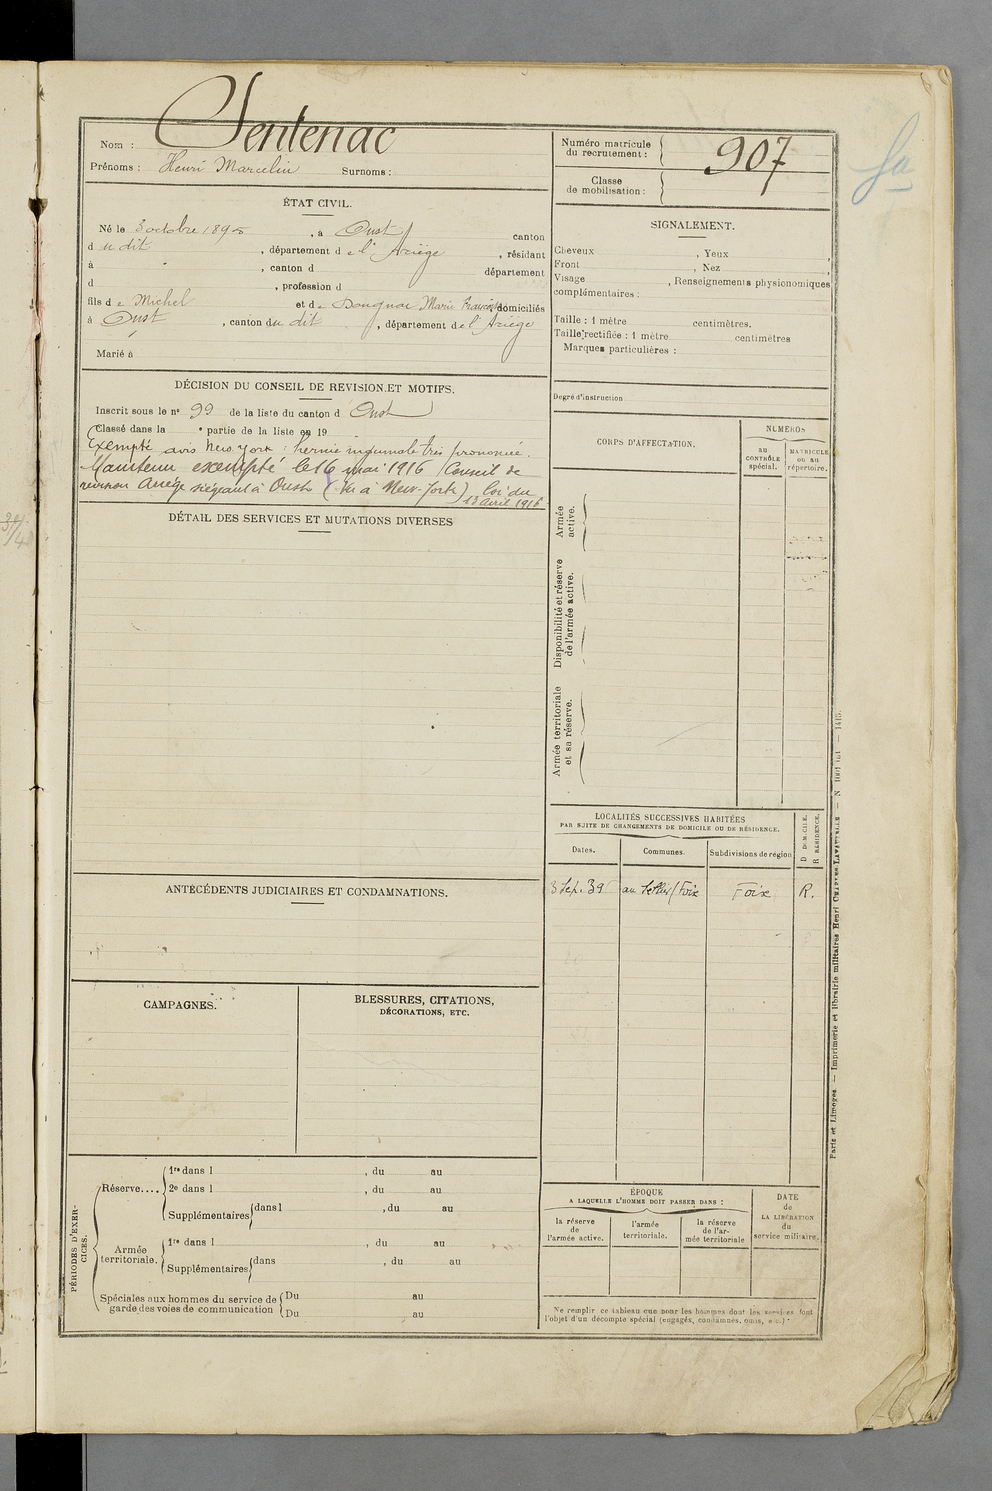 Sentenac
Nom :
Prénoms : Henri Marcelin Surnoms :
Numéro matricule du recrutement : 907
Classe de mobilisation :
ÉTAT CIVIL.
Né le 3 octobre 1895, à Oust canton
d u dit, département d e l'Ariège, résidant
à , canton d département
d , profession d
fils d e Michel et d e Dougnac Marie Françoise, domiciliés
à Oust, canton du dit, département de l'Ariège
Marié à
SIGNALEMENT.
Cheveux , Yeux ,
Front , Nez ,
Visage , Renseignements physionomiques
complémentaires :
Taille : 1 mètre centimètres.
Taille rectifiée : 1 mètre centimètres
Marques particulières :
Degré d'instruction
DÉCISION DU CONSEIL DE REVISION ET MOTIFS.
Inscrit sous le n° 99 de la liste du canton d Oust
Classé dans la e partie de la liste en 19
Exempté avis New York : hernie inguinale très prononcée.
Maintenu exempté le 16 mai 1916 (Conseil de
revision Ariège siégeant à Oust (Vu à New-York) Loi du
13 Avril 1916
DÉTAIL DES SERVICES ET MUTATIONS DIVERSES
CORPS D'AFFECTATION.
NUMÉROS
AU CONTRÔLE spécial.
MATRICULE ou au répertoire.
Armée active.
Disponibilité et réserve de l'armée active.
Armée territoriale et sa réserve.
LOCALITÉS SUCCESSIVES HABITÉES
PAR SUITE DE CHANGEMENTS DE DOMICILE OU DE RÉSIDENCE.
Dates. Communes. Subdivisions de région D DOMICILE. R RÉSIDENCE.
3 Sep. 39 Foix Foix R.
ANTÉCÉDENTS JUDICIAIRES ET CONDAMNATIONS.
CAMPAGNES.
BLESSURES, CITATIONS,
DÉCORATIONS, ETC.
PÉRIODES D'EXERCICES.
Réserve....
1re dans l , du au
2e dans l , du au
Supplémentaires dans l , du au
Armée territoriale.
1re dans l , du au
Supplémentaires dans , du au
Spéciales aux hommes du service de garde des voies de communication
Du au
Du au
ÉPOQUE
A LAQUELLE L'HOMME DOIT PASSER DANS :
la réserve de l'armée active.
l'armée territoriale.
la réserve de l'armée territoriale
DATE de LA LIBÉRATION du service militaire.
Ne remplir ce tableau que pour les hommes dont les services font
l'objet d'un décompte spécial (engagés, condamnés, omis, etc.)
Paris et Limoges. — Imprimerie et librairie militaires Henri CHARLES-LAVAUZELLE